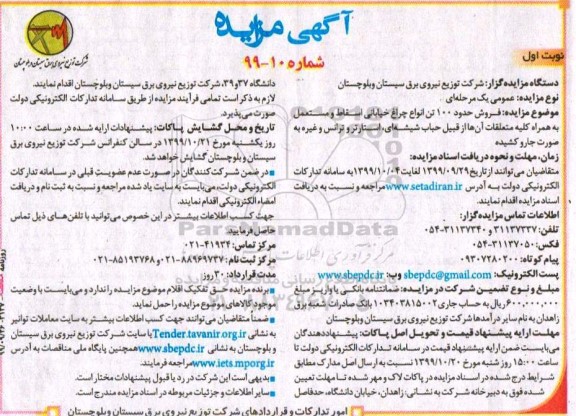 آگهی مزایده
شماره ۱۰-۹۹
نوبت اول
شرکت توزیع نیروی برق سیستان و بلوچستان
دستگاه مزایده‌گزار: شرکت توزیع نیروی برق سیستان وبلوچستان
نوع مزایده: عمومی یک مرحله‌ای
موضوع مزایده: فروش حدود ۱۰۰ تن انواع چراغ خیابانی اسقاط و مستعمل
به همراه کلیه متعلقات آن‌ها از قبیل حباب شیشه‌ای، استارتر و ترانس و غیره به
صورت جارو کشیده
زمان، مهلت و نحوه دریافت اسناد مزایده:
متقاضیان می‌توانند از تاریخ ۱۳۹۹/۰۹/۲۹ لغایت ۱۳۹۹/۱۰/۰۴ به سامانه تدارکات
الکترونیکی دولت به آدرس www.setadiran.ir مراجعه و نسبت به دریافت
اسناد مزایده اقدام نمایند.
اطلاعات تماس مزایده‌گزار:
تلفن: ۳۱۱۳۷۳۳۷ و ۳۱۱۳۷۳۴۰-۰۵۴
فکس: ۳۱۱۳۷۰۵۰-۰۵۴
پیام کوتاه: ۰۹۳۰۷۳۸۰۲۰۰
پست الکترونیک: sbepdc@gmail.com وب: www.sbepdc.ir
مبلغ و نوع تضمین شرکت در مزایده: ضمانتنامه بانکی یا واریز مبلغ
۶۰۰,۰۰۰,۰۰۰ ریال به حساب جاری ۱۱۰۳۴۰۳۸۱۵۰۰۲ بانک صادرات شعبه برق
زاهدان به نام سایر درآمدها شرکت توزیع نیروی برق سیستان وبلوچستان
مهلت ارایه پیشنهاد قیمت و تحویل اصل پاکات: پیشنهاددهندگان
می‌بایست ضمن ارایه پیشنهاد قیمت در سامانه تدارکات الکترونیکی دولت تا
ساعت ۱۵:۰۰ روز شنبه مورخ ۱۳۹۹/۱۰/۲۰ نسبت به ارسال اصل مدارک مطابق
شرایط درج شده در اسناد مزایده در پاکات لاک و مهر شده تا مهلت تعیین
شده فوق به دبیرخانه شرکت به نشانی: زاهدان، خیابان دانشگاه، حدفاصل
دانشگاه ۳۷ و ۳۹، شرکت توزیع نیروی برق سیستان وبلوچستان اقدام نمایند.
لازم به ذکر است تمامی فرآیند مزایده از طریق سامانه تدارکات الکترونیکی دولت
صورت می‌پذیرد.
تاریخ و محل گشایش پاکات: پیشنهادات ارایه شده در ساعت ۱۰:۰۰
روز یکشنبه مورخ ۱۳۹۹/۱۰/۲۱ در سالن کنفرانس شرکت توزیع نیروی برق
سیستان و بلوچستان گشایش خواهد شد.
در ضمن شرکت‌کنندگان در صورت عدم عضویت قبلی در سامانه تدارکات
الکترونیکی دولت، می‌بایست به سایت یاد شده مراجعه و نسبت به ثبت نام و دریافت
امضاء الکترونیکی اقدام نمایند.
جهت کسب اطلاعات بیشتر در این خصوص می‌توانید با تلفن‌های ذیل تماس
حاصل فرمایید:
مرکز تماس: ۴۱۹۳۴-۰۲۱
مرکز ثبت نام: ۸۸۹۶۹۷۳۷-۰۲۱ و ۸۵۱۹۳۷۶۸-۰۲۱
مدت قرارداد: ۳۰ روز
برنده مزایده حق تفکیک اقلام موضوع مزایده را ندارد و می‌بایست با وضعیت
موجود کالاهای موضوع مزایده را حمل نماید.
ضمناً متقاضیان می‌توانند جهت کسب اطلاعات بیشتر به سایت معاملات توانیر
به نشانی Tender.tavanir.org.ir یا سایت شرکت توزیع نیروی برق سیستان
و بلوچستان به نشانی www.sbepdc.ir و همچنین پایگاه ملی مناقصات به آدرس
www.iets.mporg.ir مراجعه فرمایند.
بدیهی است این شرکت در رد یا قبول پیشنهادات مختار است.
سایر اطلاعات و جزئیات مربوطه در اسناد مزایده مندرج است.
امور تدارکات و قراردادهای شرکت توزیع نیروی برق سیستان وبلوچستان
ParsNamadData